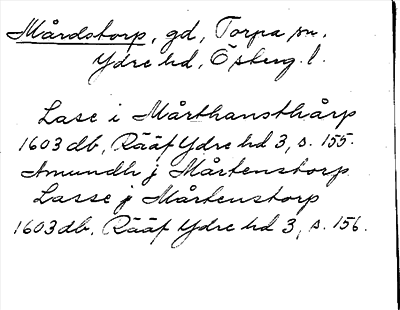 Mårdstorp, gd, Torpa sn.
Ydre hd, Österg. l.
Lase i Mårthansthårp
1603 db, Rääf Ydre hd 3, s. 155.
Amundh j Mårtenstorp
Lasse j Mårtenstorp
1603 db. Rääf Ydre hd 3, s. 156.